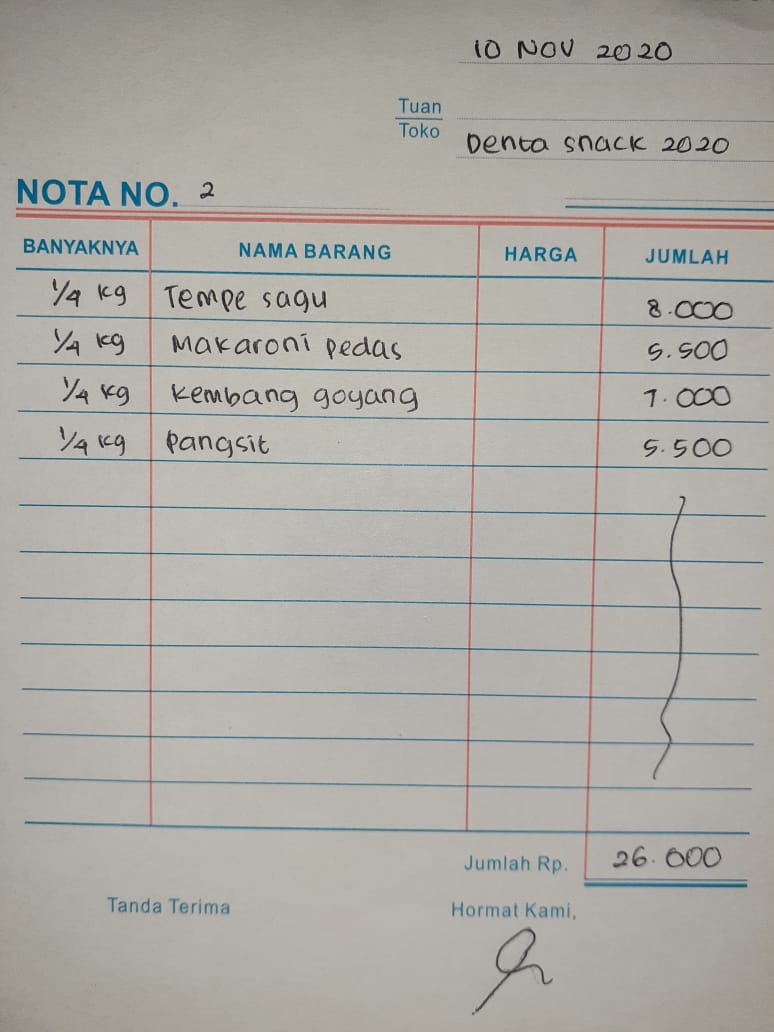 10 NOV 2020
Tuan
Toko
Denta snack 2020
NOTA NO. 2
BANYAKNYA NAMA BARANG HARGA JUMLAH
1/4 kg Tempe sagu 8.000
1/4 kg Makaroni pedas 5.500
1/4 kg Kembang goyang 7.000
1/4 kg Pangsit 5.500
Jumlah Rp. 26.000
Tanda Terima Hormat Kami,